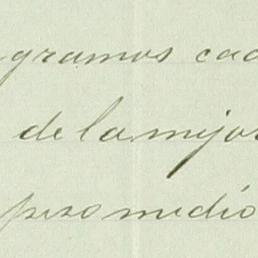 gramos cad
de la mijor
peso medio